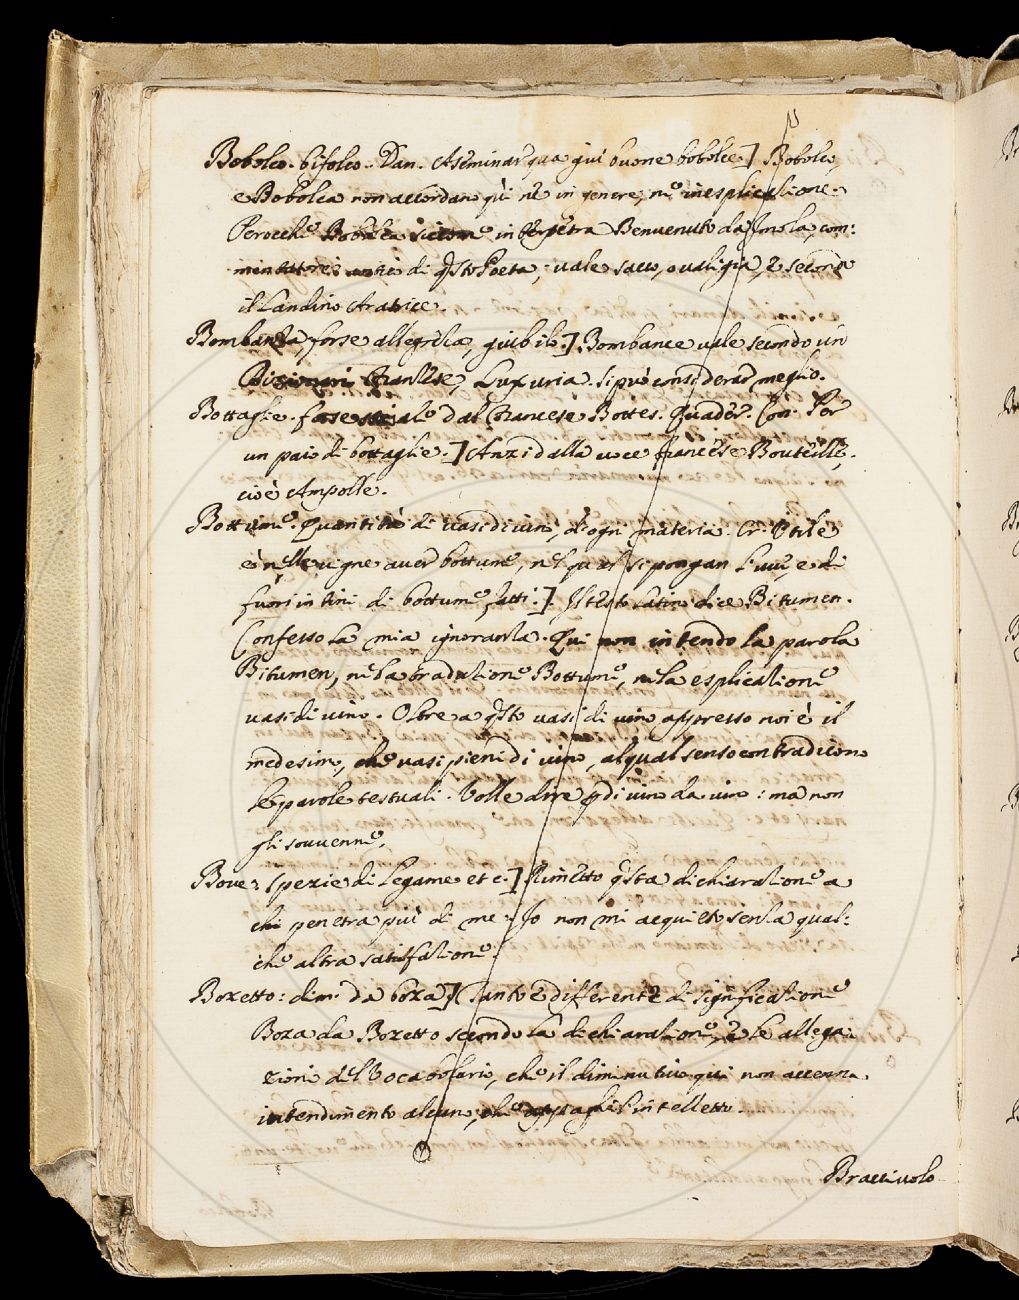 Bobolco. bifolco. Dan. A seminar qua giù buone bobolce.] Bobolco,
e Bobolca non accordan quì nè in genere, nè in esplicatione.
Perocchè Bobolca siccome interpetra Benvenuto da Imola, com:
mentatore antico di qsto Poeta, vale sacco, o valigia, e secondo
il Landino Aratrice.
Bombanza, forse allegrezza, giubilo.] Bombance vale secondo un
Dizionari franzese, Luxuria. si può considerar meglio.
Bottaglie. forse stivale dal francese Bottes. Quader. Con. Per
un paio di bottaglie.] Anzi dalla voce francese Bouteille,
cioè Ampolle.
Bottume. Quantità di vasi di vino, d'ogni materia. Cr. Utile
è nelle vigne aver bottume, nel qual si pongan l'uve, e di
fuori in tini di bottume fatti.]. Il testo Latino dice Bitumen.
Confesso la mia ignoranza. Qui non intendo la parola
Bitumen, nè la traduzione Bottume, nè la esplicatione
vasi di vino. Oltre a qsto vasi di vino appresso noi è il
medesimo, che vasi pieni di vino, al qual senso contradicono
le parole testuali. Volle dire di vino da vino: ma non
gli sovvenne.
Bove: spezie di Legame etc.] Rimetto qsta dichiarazione a
chi penetra più di me. Io non mi acquieto senza qual:
che altra satisfazione.
Bozetto: dim. da boza] Tanto è differente di significatione
Boza da Bozetto secondo la dichiaratione, e le allega
zioni del Vocabolario, che il diminutivo qui non accenna
intendimento alcuno, che appaghi l'intelletto.
Braccivolo